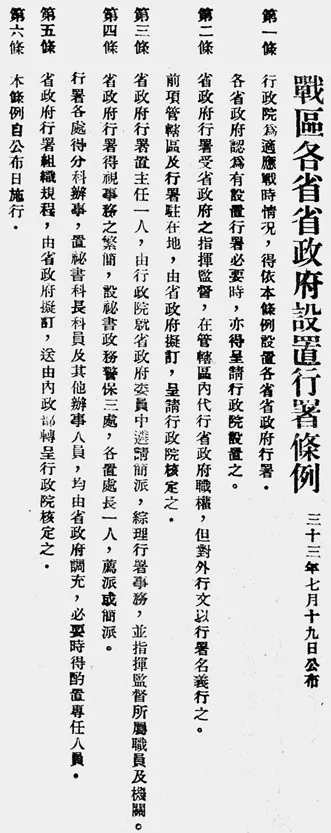 戰區各省省政府設置行署條例
三十三年七月十九日公布
第一條　行政院為適應戰時情況，得依本條例設置各省省政府行署。
各省政府認為有設置行署必要時，亦得呈請行政院設置之。
第二條　省政府行署受省政府之指揮監督，在管轄區內代行省政府職權，但對外行文以行署名義行之。
前項管轄區及行署駐在地，由省政府擬訂，呈請行政院核定之。
第三條　省政府行署置主任一人，由行政院就省政府委員中遴請簡派，綜理行署事務，並指揮監督所屬職員及機關。
第四條　省政府行署得視事務之繁簡，設祕書政務警保三處，各置處長一人，薦派或簡派。
行署各處得分科辦事，置祕書科長科員及其他辦事人員，均由省政府調充，必要時得酌置專任人員。
第五條　省政府行署組織規程，由省政府擬訂，送由內政部轉呈行政院核定之。
第六條　本條例自公布日施行。